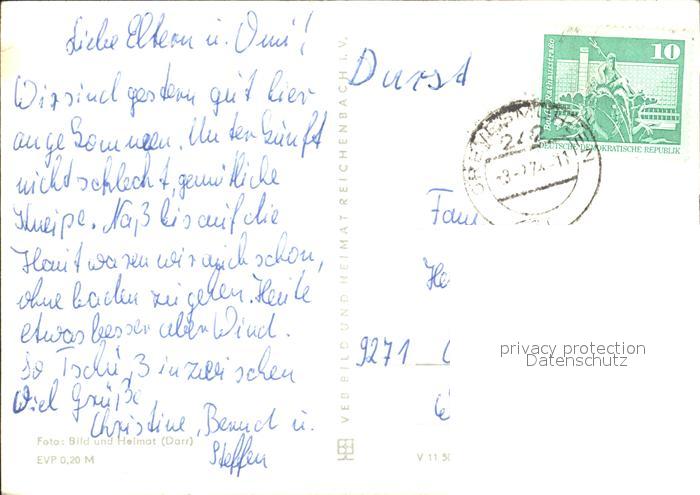 Liebe Eltern u. Omi!
Wir sind gestern gut hier
angekommen. Unterkünft
nicht schlecht, gemütliche
Kneipe. Naß bis auf die
Haut waren wir auch schon,
ohne baden zu gehen. Heute
etwas besser aber Wind.
So Tschüß inzwischen
Viel Grüße
Christine, Bernd u.
Steffen
Foto: Bild und Heimat (Darr)
EVP 0,20 M
VEB BILD UND HEIMAT REICHENBACH I. V.
Durst
10
DEUTSCHE DEMOKRATISCHE REPUBLIK
242
Fam
9271
V 11 50
privacy protection
Datenschutz